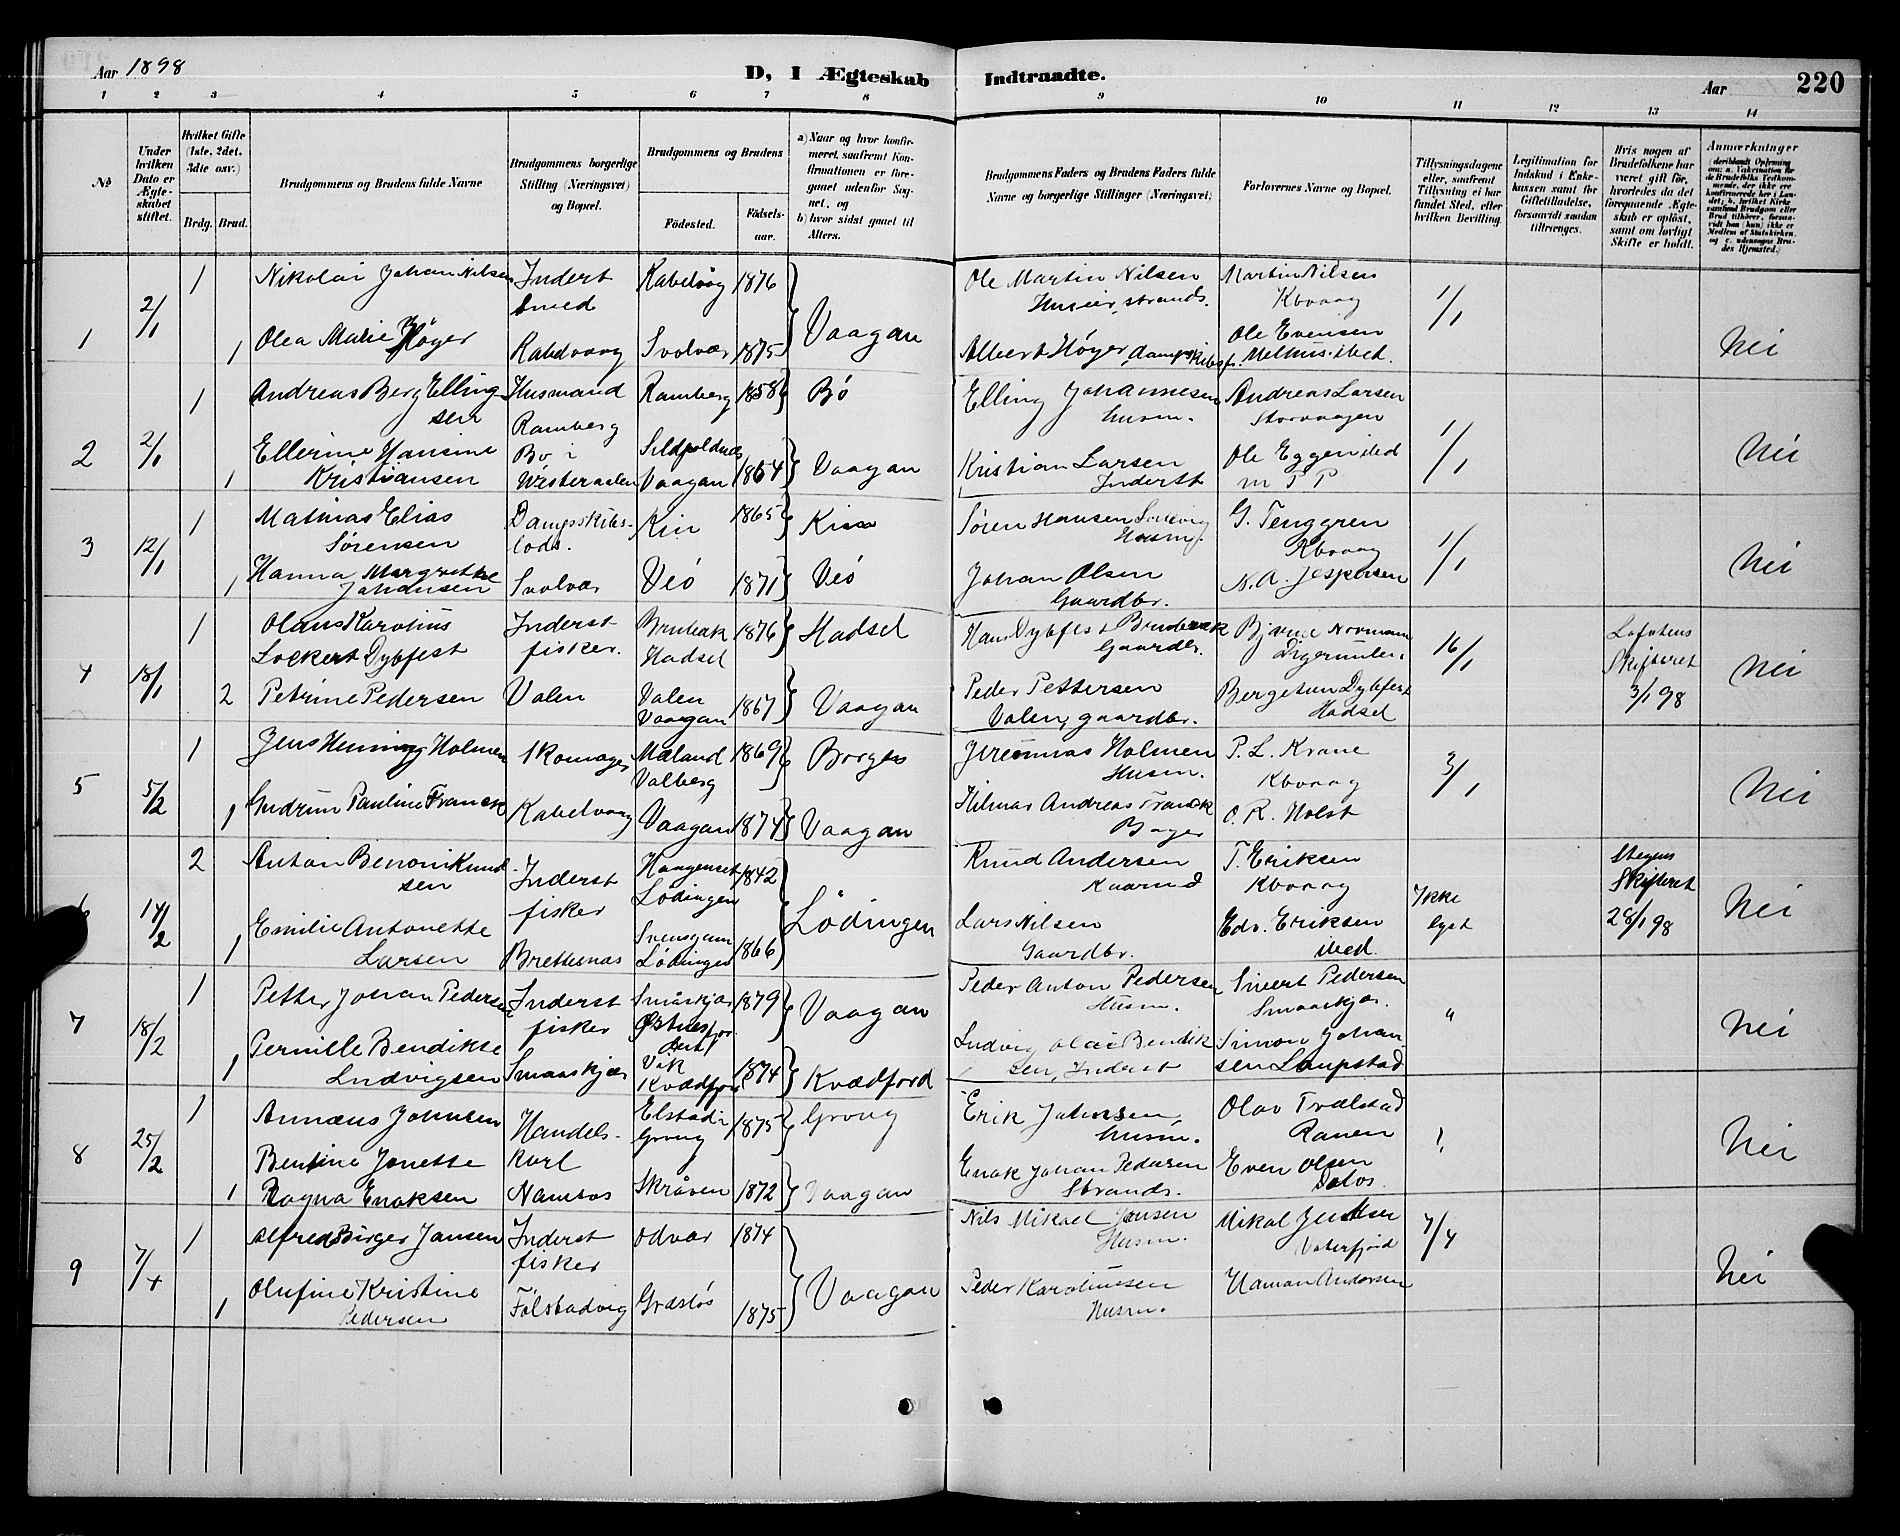 Aar 1898
D, I Ægteskab Indtraadte.
Aar
220
1 2 3 4 5 6 7 8 9 10 11 12 13 14
No
Under hvilken Dato er Ægteskabet stiftet.
Hvilket Gifte (1ste, 2det, 3die osv.)
Brdg. Brud.
Brudgommens og Brudens fulde Navne
Brudgommens borgerlige Stilling (Næringsvei) og Bopæl.
Brudgommens og Brudens
Fødested.
Fødselsaar.
a) Naar og hvor konfirmeret, saafremt Konfirmationen er foregaaet udenfor Sognet, og
b) hvor sidst gaaet til Alters.
Brudgommens Faders og Brudens Faders fulde Navne og borgerlige Stillinger (Næringsvei)
Forlovernes Navne og Bopæl.
Tillysningsdagene eller, saafremt Tillysning ei har fundet Sted, efter hvilken Bevilling.
Legitimation for Indskud i Enkekassen samt for Giftetilladelse, forsaavidt saadan tiltrænges.
Hvis nogen af Brudefolkene har været gift før, hvorledes da det foregaaende Ægteskab er opløst, samt om lovligt Skifte er holdt.
Anmærkninger
1 2/1 1 Nikolai Johan Nilsen Inderst Kabelvåg 1876 Vaagan Ole Martin Nilsen Martin Nilsen 1/1
Smed strands. Kbvaag
1 Olea Marie Høyer Kabelvaag Svolvær 1875 Albert Høyer, Dampskibsf. Ole Evensen Melhus ibd. Nei
2 2/1 1 Andreas Berg Ellingsen Husmand Ramberg 1858 Bö Elling Johannesen Andreas Larsen 1/1
Ramberg husm. Storvaagen
1 Ellerine Hansine Bö i Sildpoldnes 1864 Vaagan Kristian Larsen Ole Eggen ibd Nei
Kristiansen Westeraalen Vaagan Inderst
3 12/1 1 Mathias Elias Dampskibs- Kin 1865 Kinn Søren Hansen G. Tenggren 1/1
Sørensen lods. Husm. Kbvaag
1 Hanna Margrethe Svolvær Veö 1871 Veö Johan Olsen N. A. Jespersen Nei
Johansen Gaardbr.
4 18/1 1 Olaus Karolius Inderst Hadsel 1876 Hadsel Hans Dybfest Bjarne Normann 16/1 Lofotens
Lockert Dybfest fisker. Gaardbr. Digermulen Skifteret
2 Petrine Pedersen Valen Valen 1867 Vaagan Peder Pettersen Bergetun Dybfest 3/1 98 Nei
Vaagan Valen, gaardbr. Hadsel
5 5/2 1 Jens Henning Holmen Skomager Mæland 1869 Borge Jeremias Holmen P. L. Krane 3/1
Valberg Husm. Kbvaag
1 Gudrun Pauline Franck Kabelvaag Vaagan 1874 Vaagan Hilmar Andreas Franck O. R. Holst Nei
Bager
6 14/2 2 Anton Benoni Knudsen Inderst 1842 Lödingen Knud Andersen T. Eriksen Ikke Stegens
fisker Lödingen Kbvaag lyst Skifteret
1 Emilie Antonette 1866 Lars Nilsen Edv. Eriksen 28/1 98 Nei
Larsen Brettesnæs Lödingen Gaardbr. ibed.
7 18/2 1 Petter Johan Pedersen Inderst Småskjær 1879 Vaagan Peder Anton Pedersen Sivert Pedersen "
fisker Husm. Smaaskjær.
1 Pernille Bendikte Smaaskjær Vik 1874 Kvædfjord Ludvig Olai Bendik- Simon Johan- Nei
Ludvigsen Kvædfjord sen, Inderst sen Laupstad
8 25/2 1 Annæus Johnsen Handels- Elstad i 1875 Grong Erik Johnsen Olav Trælstad
karl Grong husm. Ranen
1 Bentine Jonette Namsos Skråven 1872 Vaagan Enok Johan Pedersen Even Olsen Nei
Ragna Enoksen Strands. Dalos
9 7/4 1 Alfred Birger Jansen Inderst Odvær 1874 Vaagan Nils Mikael Jansen Mikal Jentsen 7/4
fisker Husm. Vaterfjord
1 Olufine Kristine Fölstadvig Græsløs 1875 Peder Karoliussen Haman Andersen Nei
Pedersen Husm.